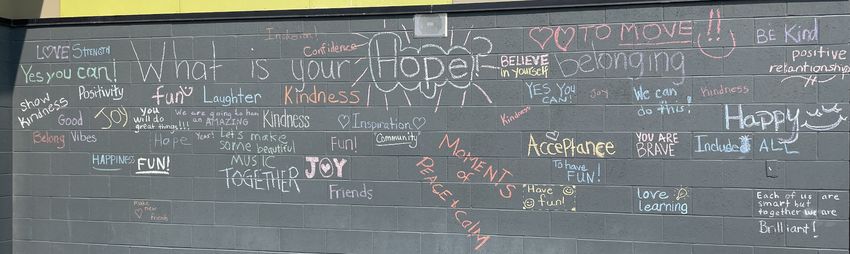 Inclusion!
Confidence
LOVE STRENGTH
Yes you can!
What is your Hope?
BELIEVE
in yourself
TO MOVE!!
belonging
BE Kind
positive
relantionships
show
Kindness
Positivity
fun
Laughter
Kindness
YES YOU
CAN!
Joy
We can
do this!
Kindness
Good
JOY
you
will do
great things!!!
We are going to have
an AMAZING
Year!
Kindness
Inspiration
Kindness
HAPPY
Belong
Vibes
Hope
Let's make
some beautiful
MUSIC
TOGETHER
Fun!
Community
Acceptance
YOU ARE
BRAVE
Include ALL
HAPPINESS
FUN!
JOY
Friends
MOMENTS
of
PEACE & CALM
To have
FUN!
Have
fun!
Love
learning
Make
new
friends
Each of us are
smart but
together we are
Brilliant!